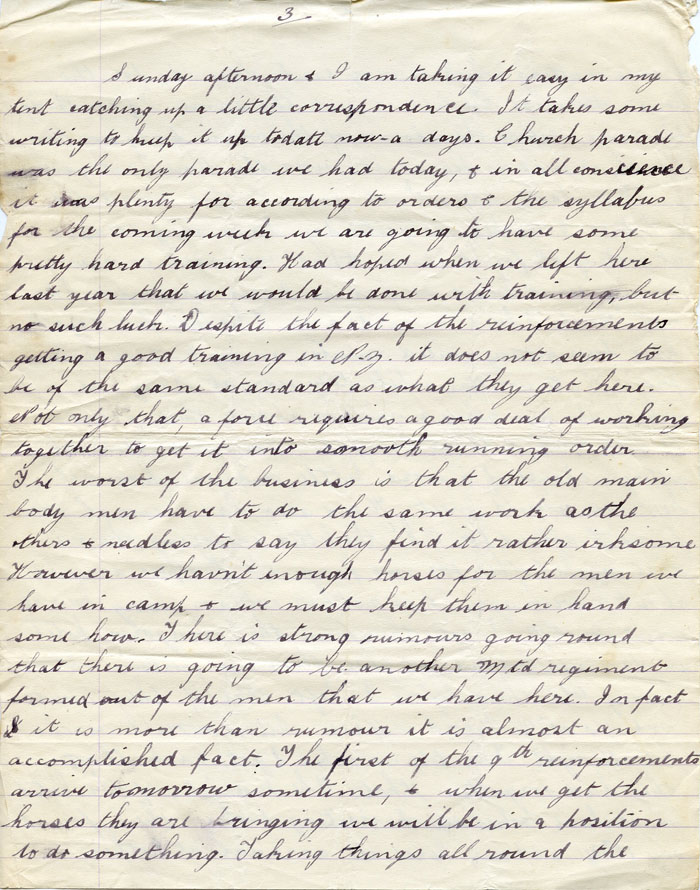 3
Sunday afternoon & I am taking it easy in my
tent catching up a little correspondence. It takes some
writing to keep it up todate now-a days. Church parade
was the only parade we had today, & in all conscience
it was plenty for according to orders & the syllabus
for the coming week we are going to have some
pretty hard training. Had hoped when we left here
last year that we would be done with training, but
no such luck. Despite the fact of the reinforcements
getting a good training in N.Z. it does not seem to
be of the same standard as what they get here.
Not only that, a force requires a good deal of working
together to get it into smooth running order
The worst of the business is that the old main
body men have to do the same work as the
others & needless to say they find it rather irksome
However we havn't enough horses for the men we
have in camp & we must keep them in hand
some how. There is strong rumours going round
that there is going to be another Mtd regiment
formed out of the men that we have here. In fact
it is more than rumour it is almost an
accomplished fact. The first of the 9th reinforcements
arrive tomorrow sometime, & when we get the
horses they are bringing we will be in a position
to do something. Taking things all round the